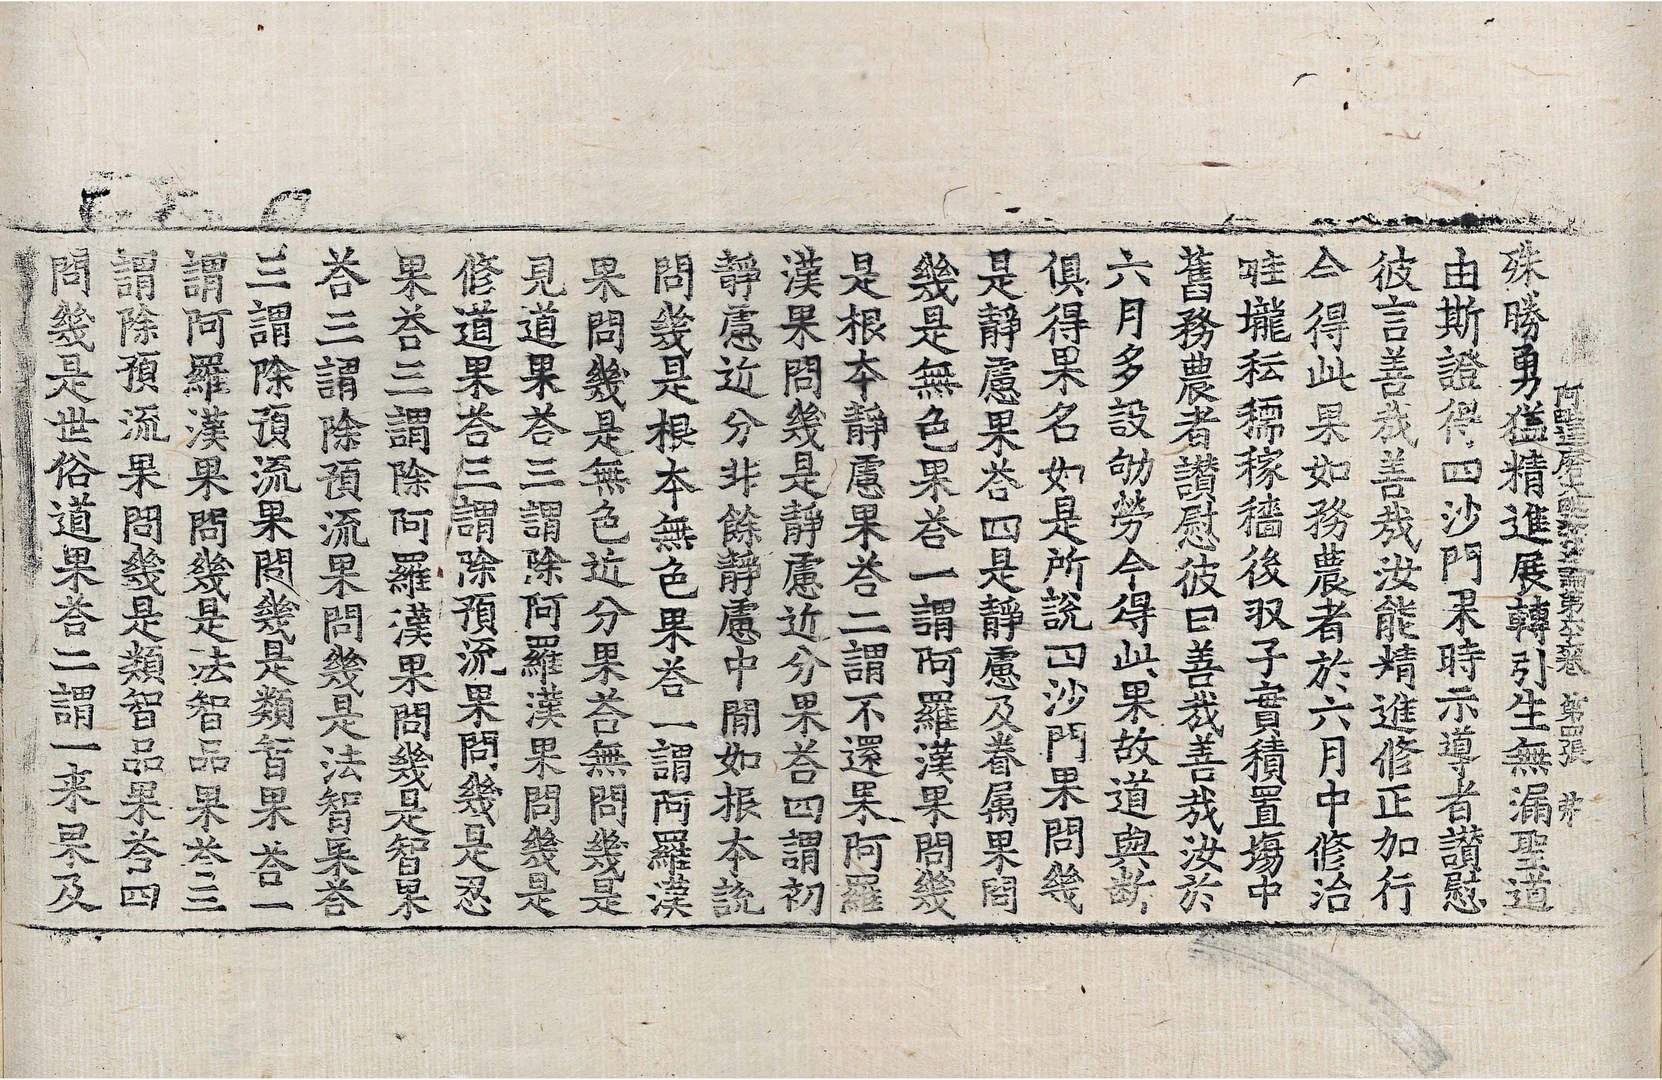 阿毗達磨大毗婆沙論第六十六卷 第四張 弗
殊勝勇猛精進展轉引生無漏聖道
由斯證得四沙門果時示導者讃慰
彼言善哉善哉汝能精進修正加行
今得此果如務農者於六月中修治
畦壠耘穤稼穡後収子實積置塲中
舊務農者讃慰彼曰善哉善哉汝於
六月多設劬勞今得此果故道與断
俱得果名如是所說四沙門果問幾
是靜慮果荅四是靜慮及眷属果問
幾是無色果荅一謂阿羅漢果問幾
是根本靜慮果荅二謂不還果阿羅
漢果問幾是靜慮近分果荅四謂初
靜慮近分非餘靜慮中間如根本說
問幾是根本無色果荅一謂阿羅漢
果問幾是無色近分果荅無問幾是
見道果荅三謂除阿羅漢果問幾是
修道果荅三謂除預流果問幾是忍
果荅三謂除阿羅漢果問幾是智果
荅三謂除預流果問幾是法智果荅
三謂除預流果問幾是類智果荅一
謂阿羅漢果問幾是法智品果荅三
謂除預流果問幾是類智品果荅四
問幾是世俗道果荅二謂一来果及